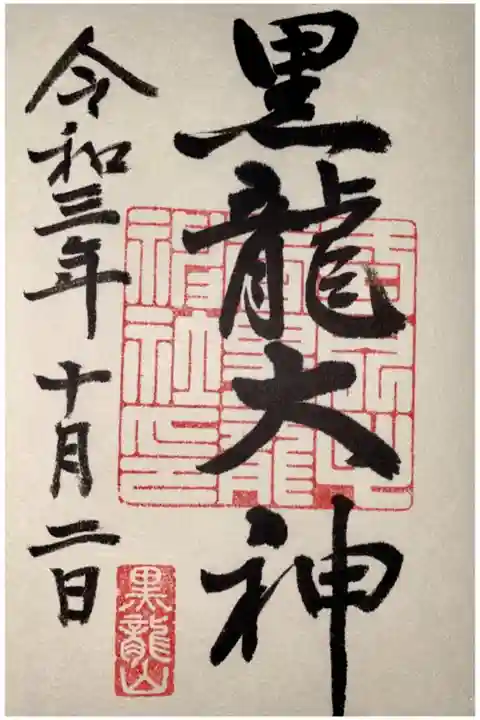 黒龍大神
令和三年十月二日
黒龍山